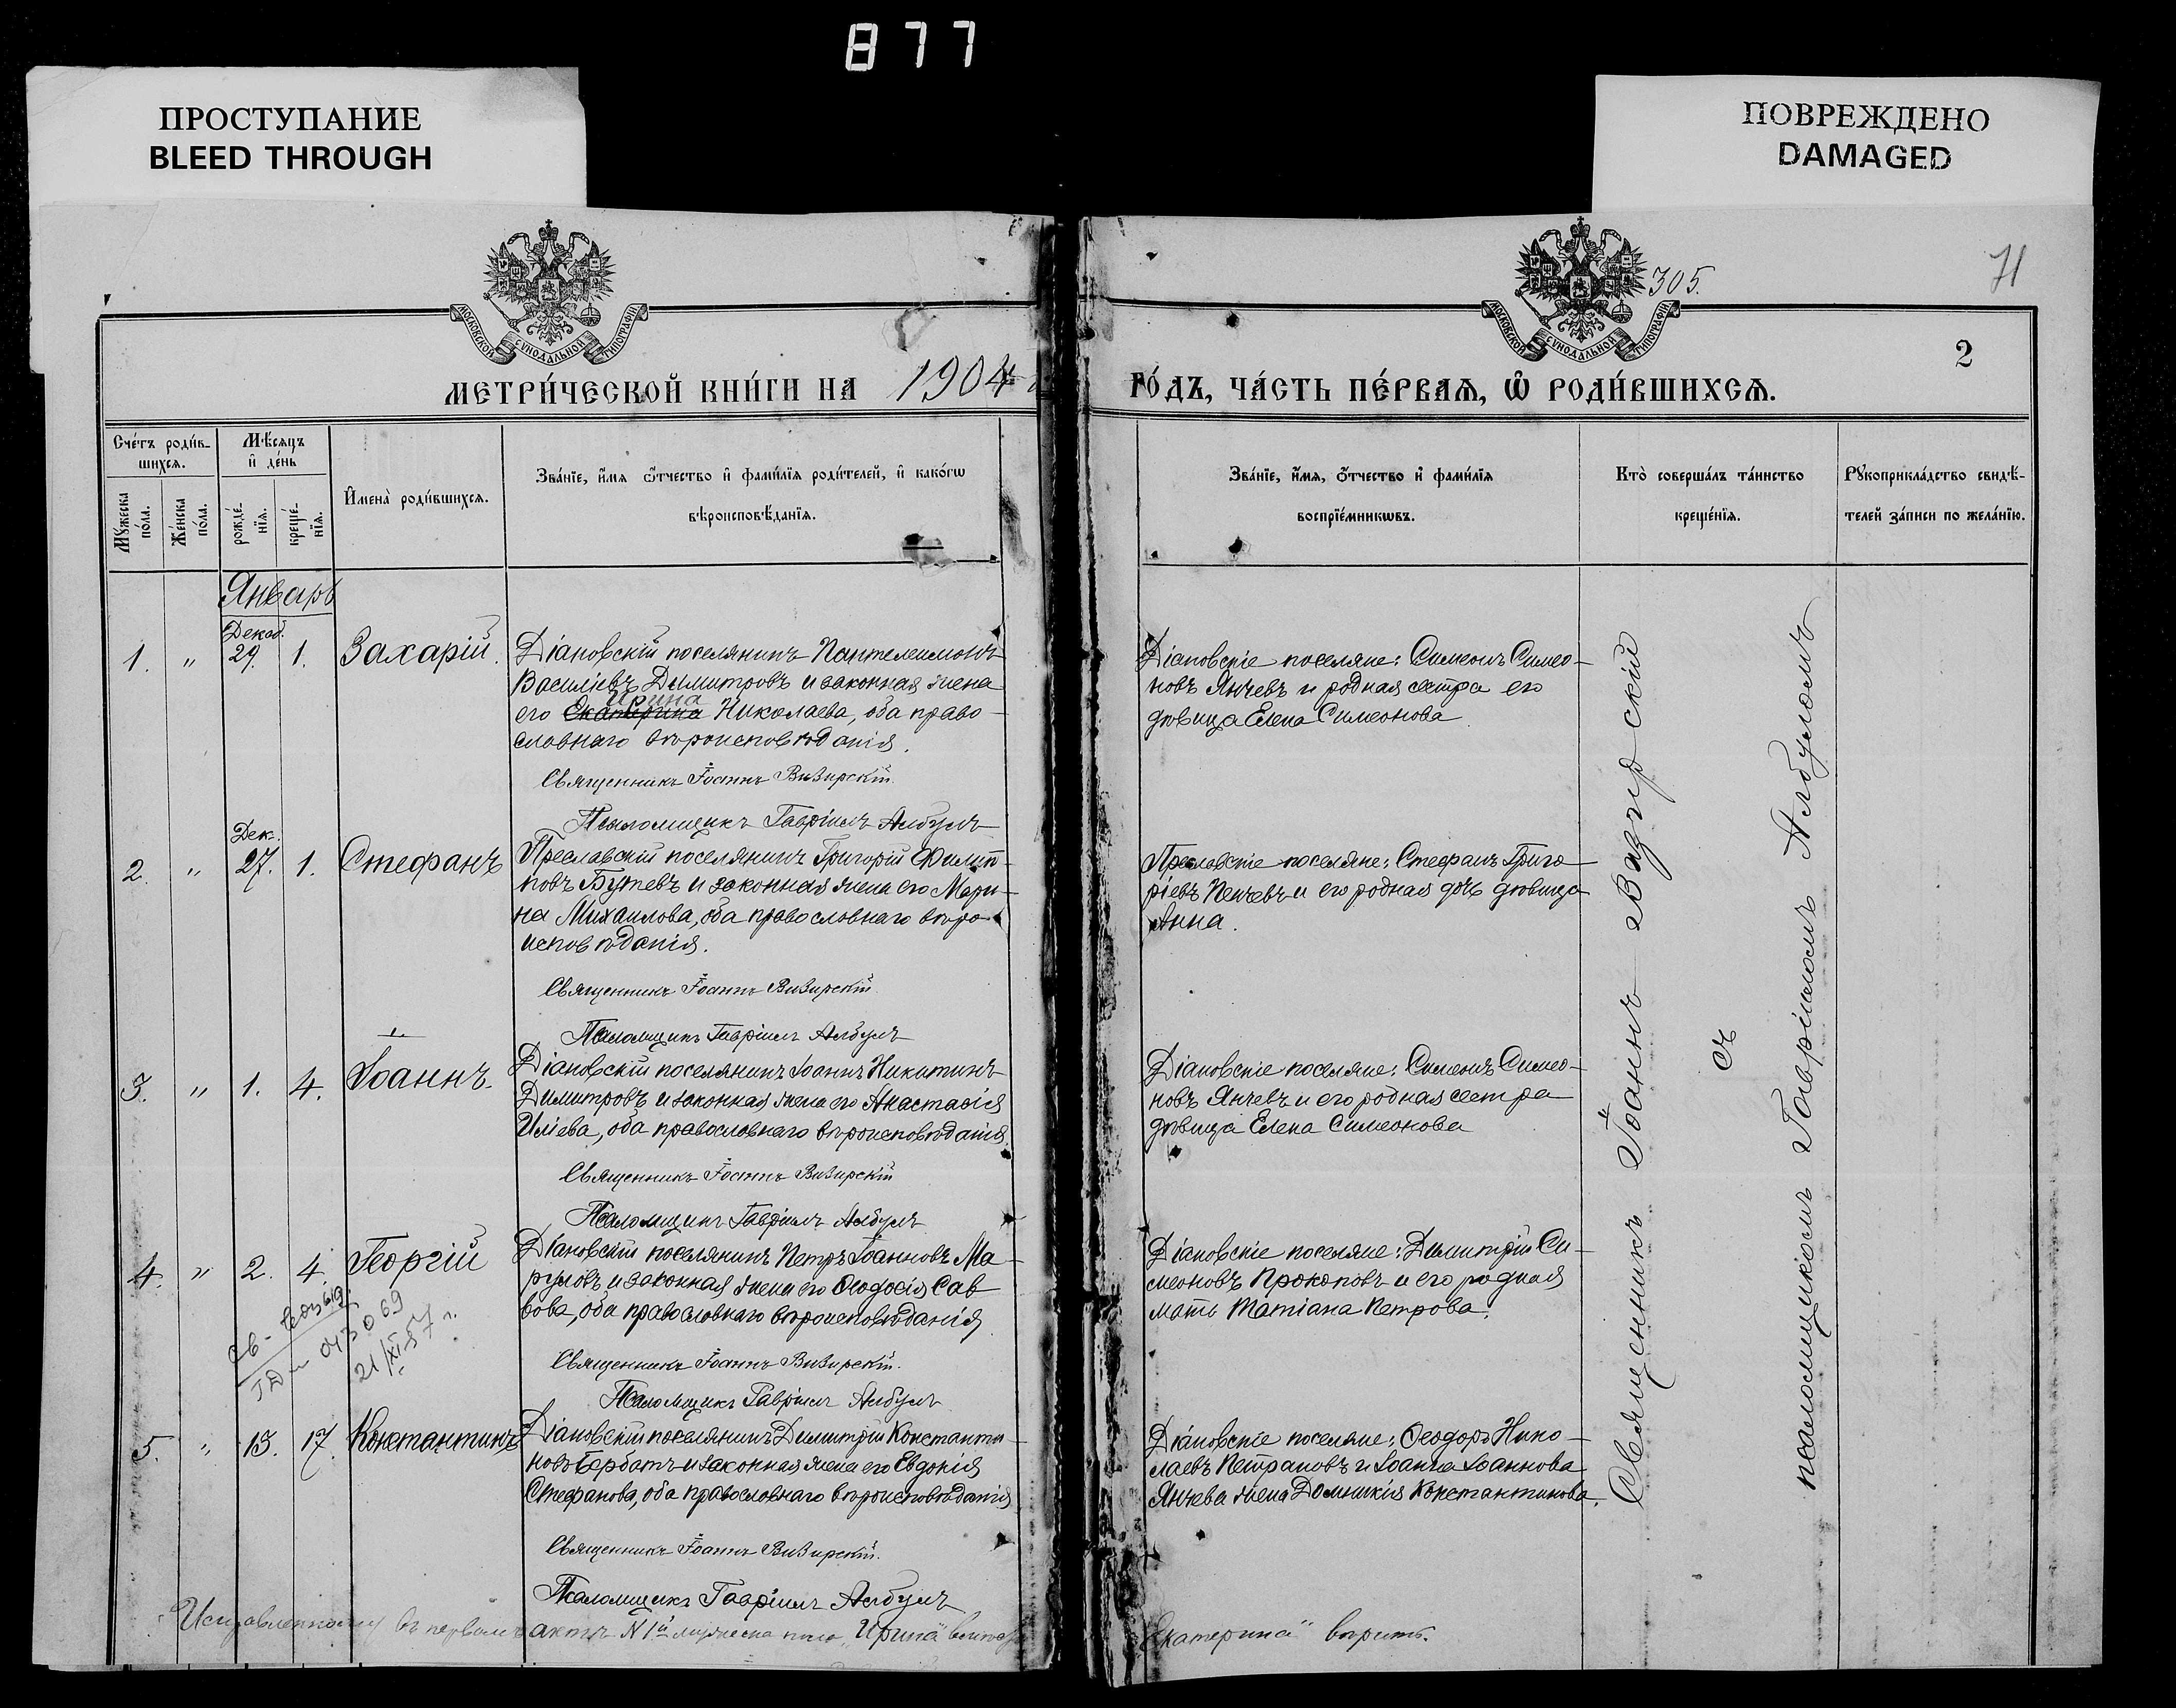 877
ПРОСТУПАНИЕ
BLEED THROUGH
ПОВРЕЖДЕНО
DAMAGED
МОСКОВСКОЙ СѴНОДАЛЬНОЙ ТИПОГРАФІИ
МОСКОВСКОЙ СѴНОДАЛЬНОЙ ТИПОГРАФІИ
305.
71
2
МЕТРИ́ЧЕСКОЙ КНИ́ГИ НА 1904
ГО́ДЪ, ЧА́СТЬ ПЕ́РВАѦ, Ѡ РОДИ́ВШИХСѦ.
Сче́тъ роди́в-
шихсѧ.
Мѣ́сѧцъ
и҆ де́нь
Мꙋ́жеска
по́ла.
Же́нска
по́ла.
рожде́-
нїѧ.
креще́-
нїѧ.
И҆мена̀ роди́вшихсѧ.
Зва́нїе, и҆́мѧ ѻ҆́тчество и҆ фами́лїѧ роди́телей, и҆ како́гѡ
вѣроисповѣ́данїѧ.
Зва́нїе, и҆́мѧ, ѻ҆́тчество и҆ фами́лїѧ
воспрїе́мникѡвъ.
Кто̀ соверша́лъ та́инство
креще́нїѧ.
Рꙋкоприкла́дство свидѣ́-
телей за́писи по жела́нїю.
Январь
Декаб.
1. „ 29. 1. Захарій.
Діановскій поселянинъ Пантелеимонъ
Василіевъ Димитровъ и законная жена
Ирина
его Екатерина Николаева, оба право-
славнаго вѣроисповѣданія.
Священникъ Іоаннъ Визирскій.
Псаломщикъ Гавріилъ Албулъ
Діановскіе поселяне: Симеонъ Симео-
новъ Янчевъ и родная сестра его
дѣвица Елена Симеонова
Дек.
2. „ 27. 1. Стефанъ
Преславскій поселянинъ Григорій Филип-
повъ Бужевъ и законная жена его Мари-
на Михаилова, оба православнаго вѣро-
исповѣданія.
Священникъ Іоаннъ Визирскій
Псаломщикъ Гавріилъ Албулъ
Преславскіе поселяне: Стефанъ Григо-
ріевъ Пенчевъ и его родная дочь дѣвица
Анна.
3. „ 1. 4. Іоаннъ.
Діановскій поселянинъ Іоаннъ Никитинъ
Димитровъ и законная жена его Анастасія
Иліева, оба православнаго вѣроисповѣданія.
Священникъ Іоаннъ Визирскій
Псаломщикъ Гавріилъ Албулъ
Діановскіе поселяне: Симеонъ Симео-
новъ Янчевъ и его родная сестра
дѣвица Елена Симеонова
4. „ 2. 4. Георгій
Діановскій поселянинъ Петръ Іоанновъ Ма-
руловъ и законная жена его Ѳеодосія Сав-
вова, оба православнаго вѣроисповѣданія
Священникъ Іоаннъ Визирскій.
Псаломщикъ Гавріилъ Албулъ
Діановскіе поселяне: Димитрій Си-
меоновъ Прокоповъ и его родная
мать Татіана Петрова.
043069
21/XI 57 г.
5. „ 13. 17. Константинъ
Діановскій поселянинъ Димитрій Константи-
новъ Гербатъ и законная жена его Евдокія
Стефанова, оба православнаго вѣроисповѣданія
Священникъ Іоаннъ Визирскій.
Псаломщикъ Гавріилъ Албулъ
Діановскіе поселяне: Ѳеодоръ Нико-
лаевъ Петрановъ и Іоанна Іоаннова
Янчева жена Домникія Константинова.
Священникъ Іоаннъ Визирскій
съ
псаломщикомъ Гавріиломъ Албуломъ
Исправленному въ первомъ актѣ N 1й мужеска пола „Ирина" вмѣсто
„Екатерина" вѣрить.